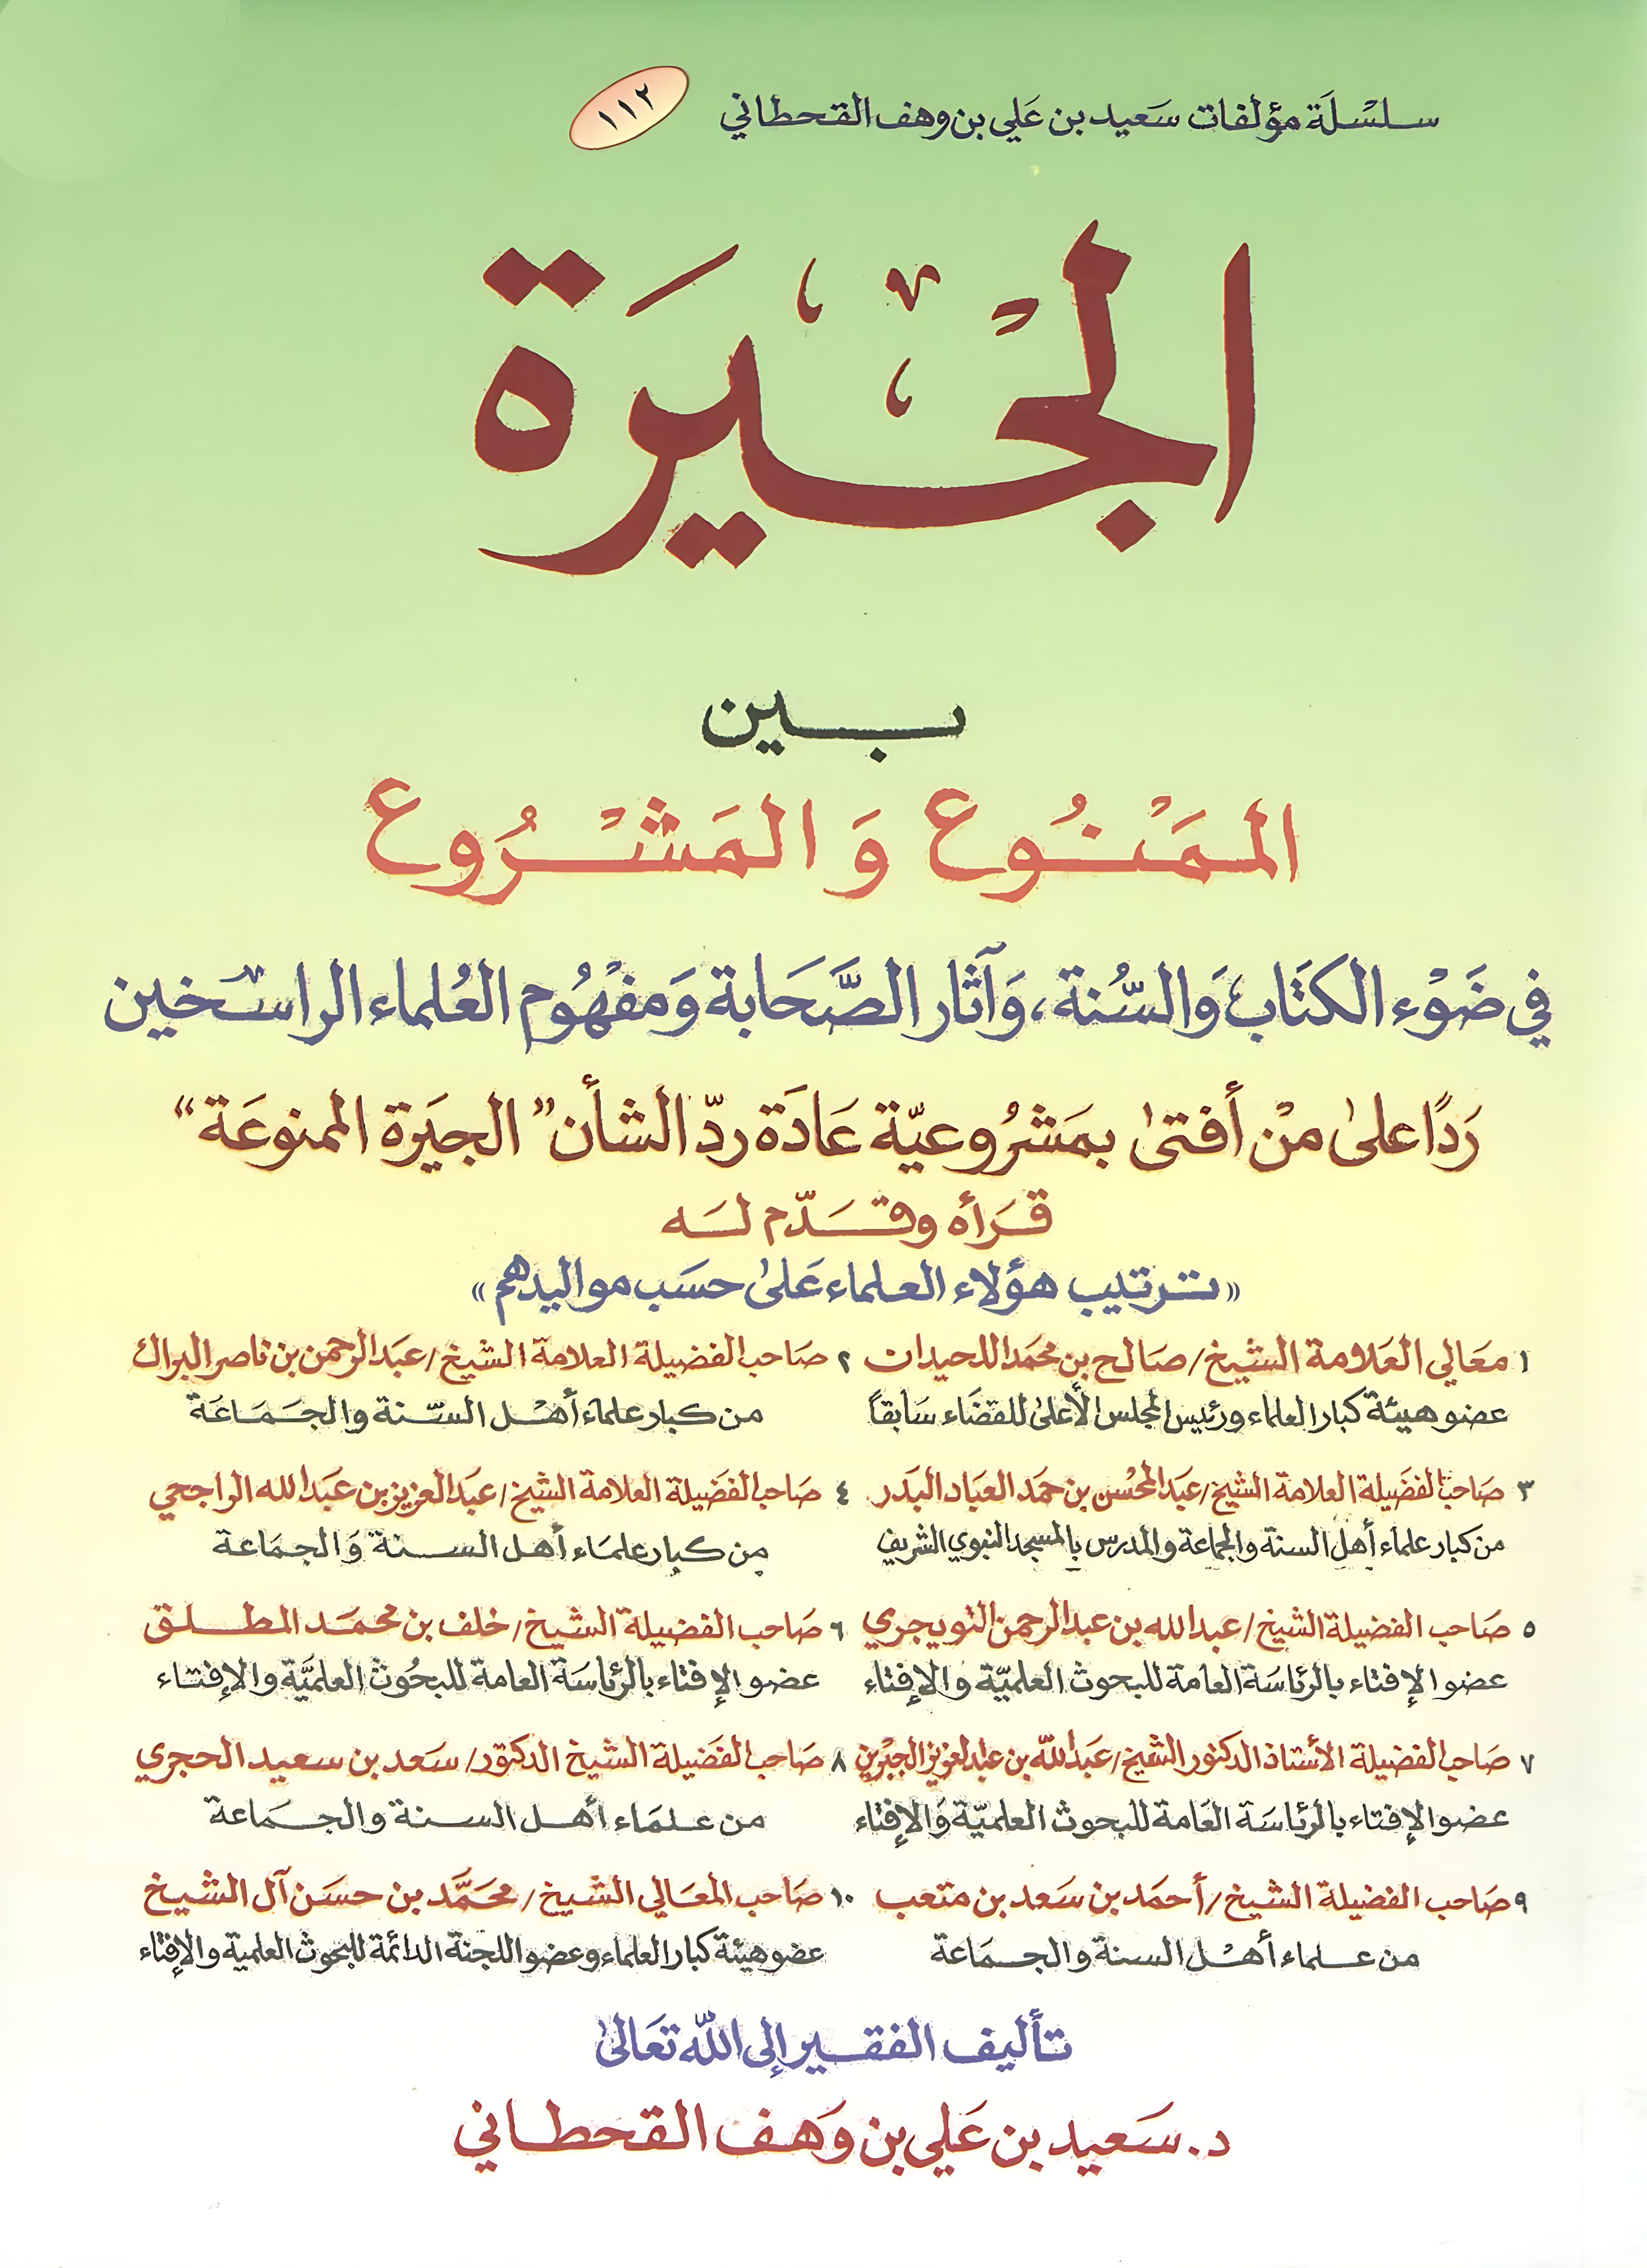 سلسلة مؤلفات سعيد بن علي بن وهف القحطاني ١١٢
الجيرة
بين
الممنوع والمشروع
في ضوء الكتاب والسنة، وآثار الصحابة ومفهوم العلماء الراسخين
ردًا على من أفتى بمشروعية عادة رد الشأن "الجيرة الممنوعة"
قرأه وقدم له
«ترتيب هؤلاء العلماء على حسب مواليدهم»
١ معالي العلامة الشيخ/ صالح بن محمد اللحيدان
عضو هيئة كبار العلماء ورئيس المجلس الأعلى للقضاء سابقاً
٢ صاحب الفضيلة العلامة الشيخ/ عبدالرحمن بن ناصر البراك
من كبار علماء أهل السنة والجماعة
٣ صاحب الفضيلة العلامة الشيخ/ عبدالمحسن بن حمد العباد البدر
من كبار علماء أهل السنة والجماعة والمدرس بالمسجد النبوي الشريف
٤ صاحب الفضيلة العلامة الشيخ/ عبدالعزيز بن عبدالله الراجحي
من كبار علماء أهل السنة والجماعة
٥ صاحب الفضيلة الشيخ/ عبدالله بن عبدالرحمن التويجري
عضو الإفتاء بالرئاسة العامة للبحوث العلمية والإفتاء
٦ صاحب الفضيلة الشيخ/ خلف بن محمد المطلق
عضو الإفتاء بالرئاسة العامة للبحوث العلمية والإفتاء
٧ صاحب الفضيلة الأستاذ الدكتور الشيخ/ عبدالله بن عبدالعزيز الجبرين
عضو الإفتاء بالرئاسة العامة للبحوث العلمية والإفتاء
٨ صاحب الفضيلة الشيخ الدكتور/ سعد بن سعيد الحجري
من علماء أهل السنة والجماعة
٩ صاحب الفضيلة الشيخ/ أحمد بن سعد بن متعب
من علماء أهل السنة والجماعة
١٠ صاحب المعالي الشيخ/ محمد بن حسن آل الشيخ
عضو هيئة كبار العلماء وعضو اللجنة الدائمة للبحوث العلمية والإفتاء
تأليف الفقير إلى الله تعالى
د. سعيد بن علي بن وهف القحطاني